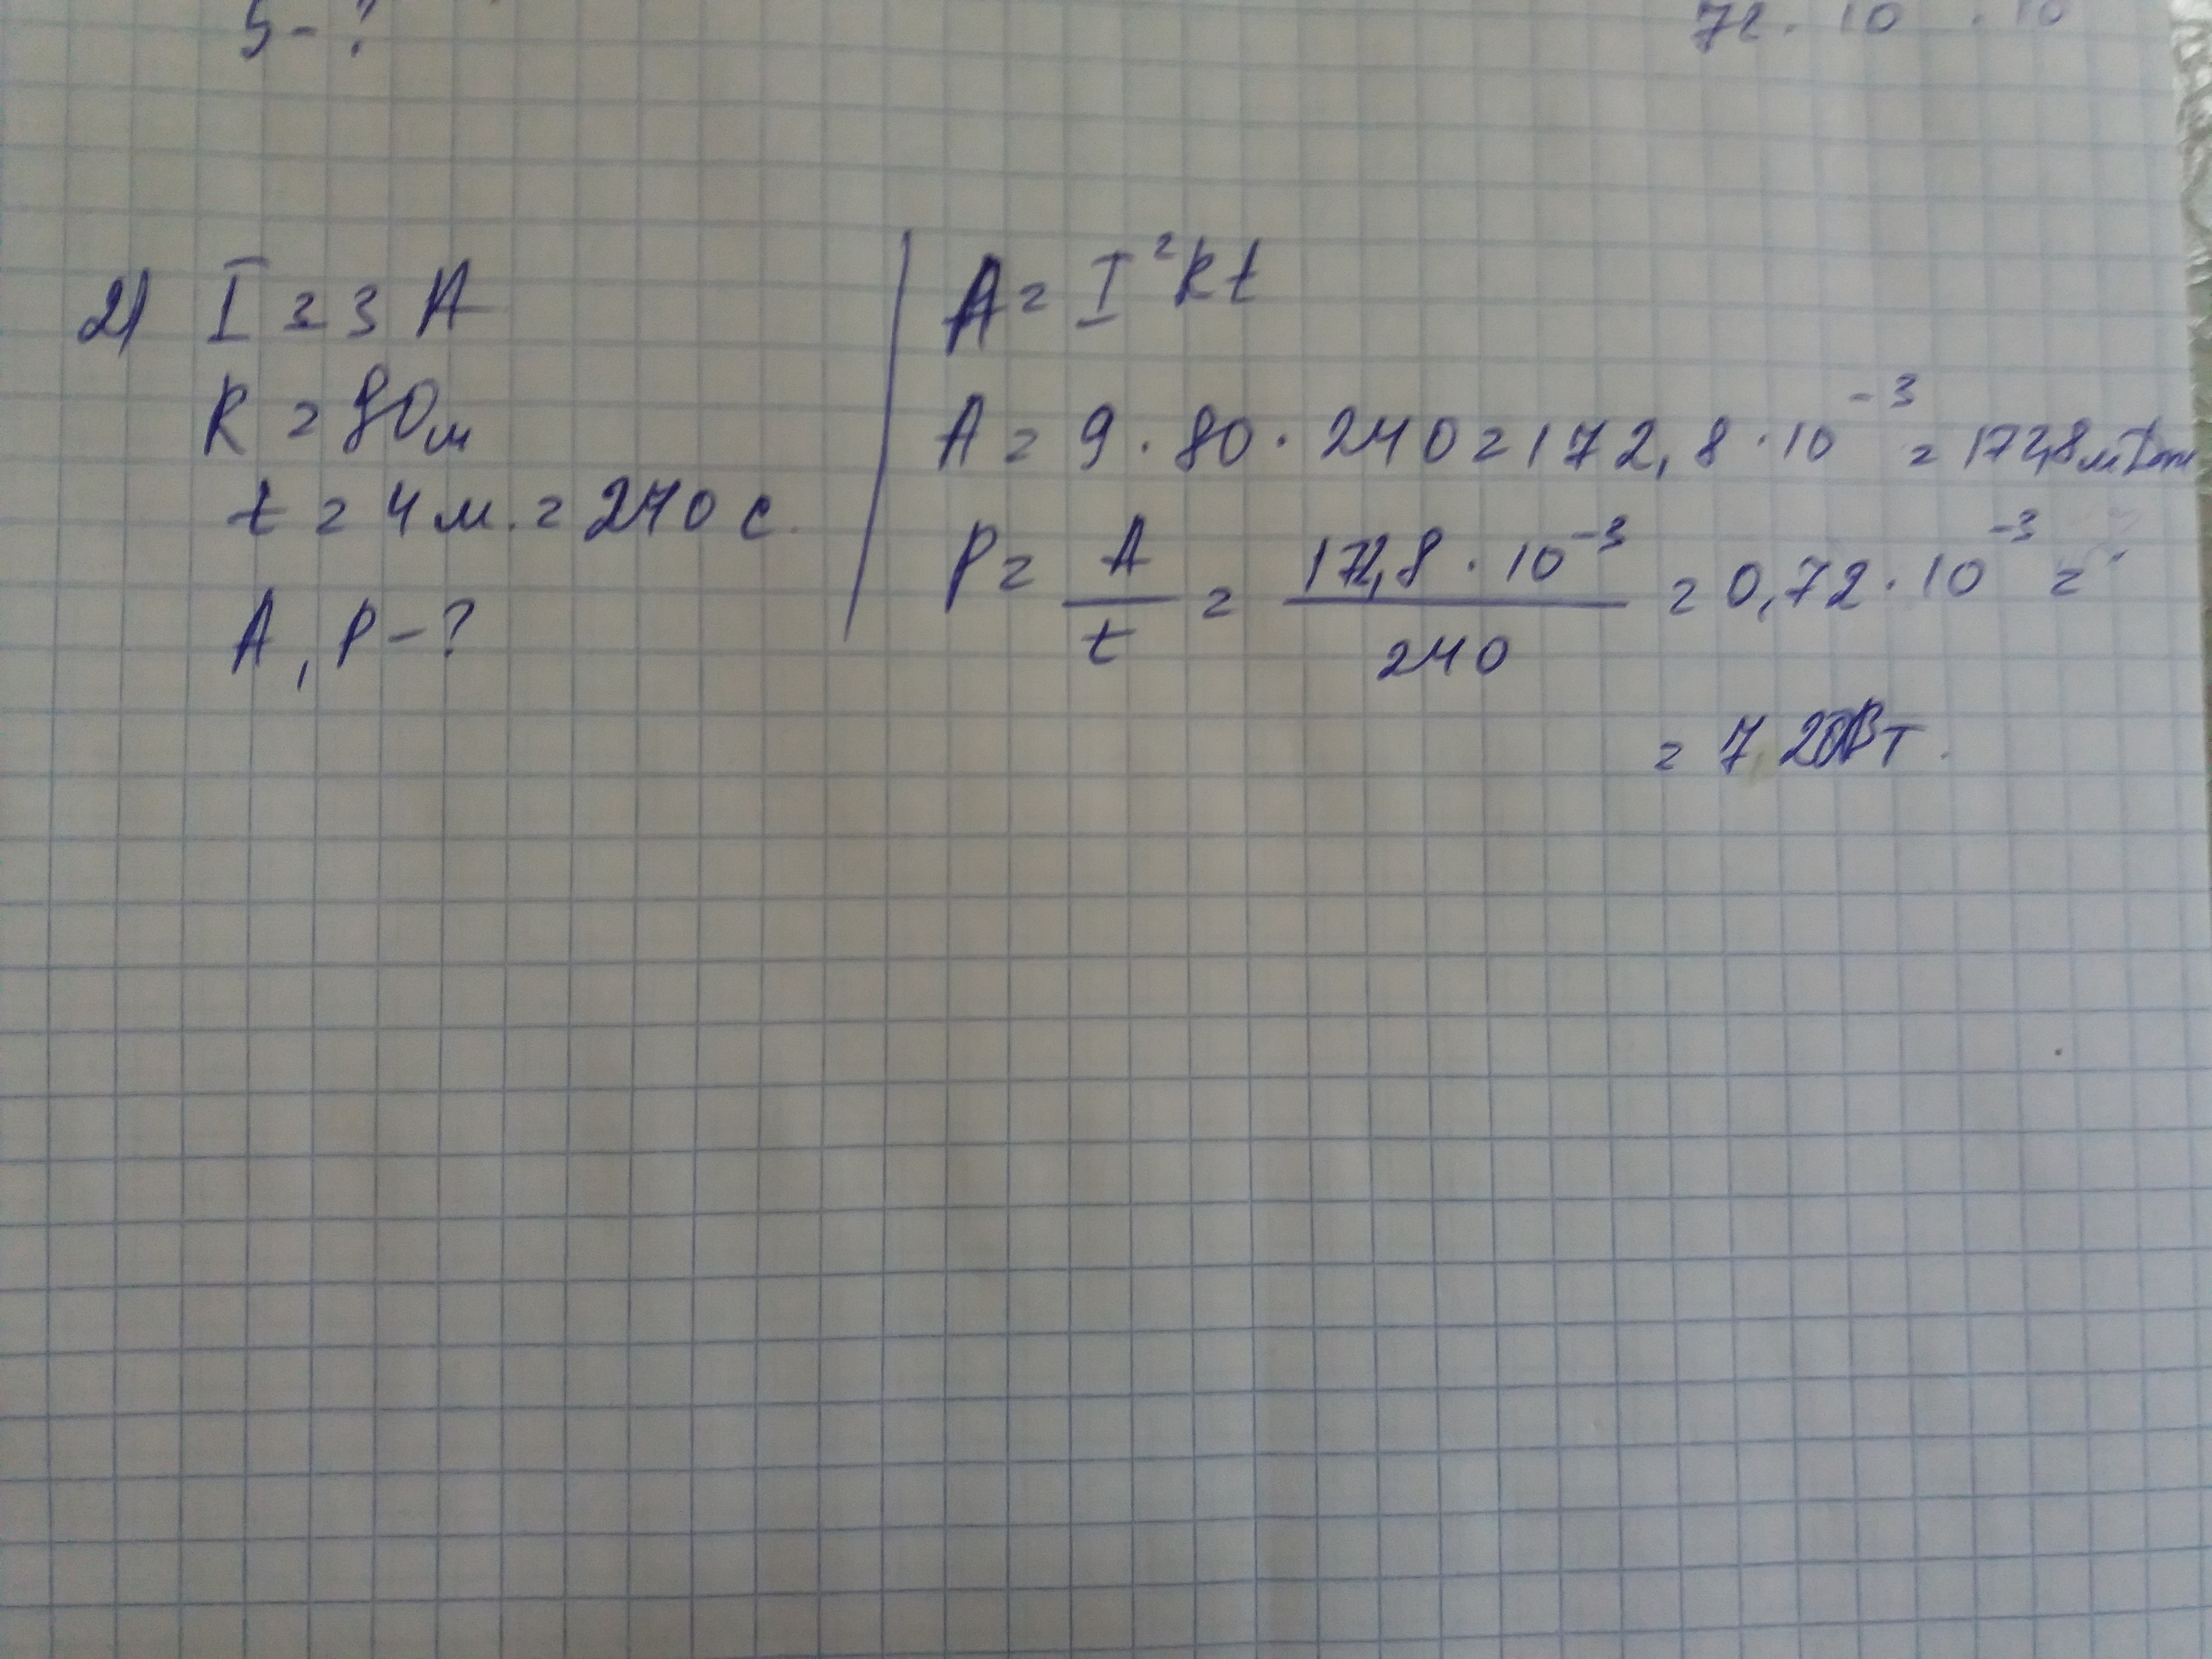 S - ?
72 . 10 . 10
2) I = 3 A
R = 80м
t = 4 м. = 240 с.
A, P - ?
A = I²Rt
A = 9 · 80 · 240 = 172,8 · 10⁻³ = 172,8мДж
P = A/t = 172,8 · 10⁻³/240 = 0,72 · 10⁻³ =
= 7,20Вт.